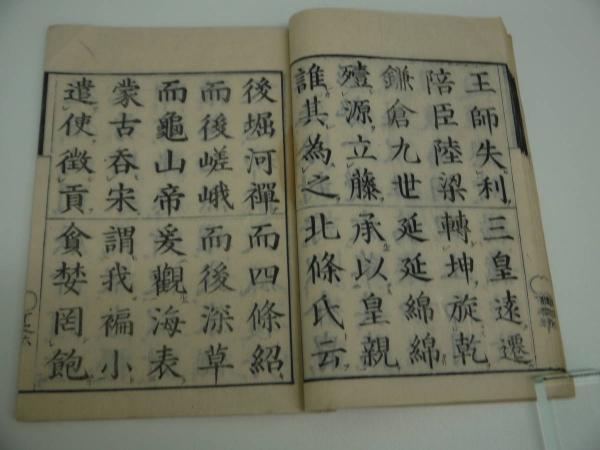 王師失利三皇遠遷
陪臣陸梁轉坤旋乾
鎌倉九世延延綿綿
殪源立藤承以皇親
誰其為之北條氏云
後堀河禪而四條紹
而後嵯峨而後深草
而龜山帝爰觀海表
蒙古吞宋謂我褊小
遣使徵貢貪婪罔飽